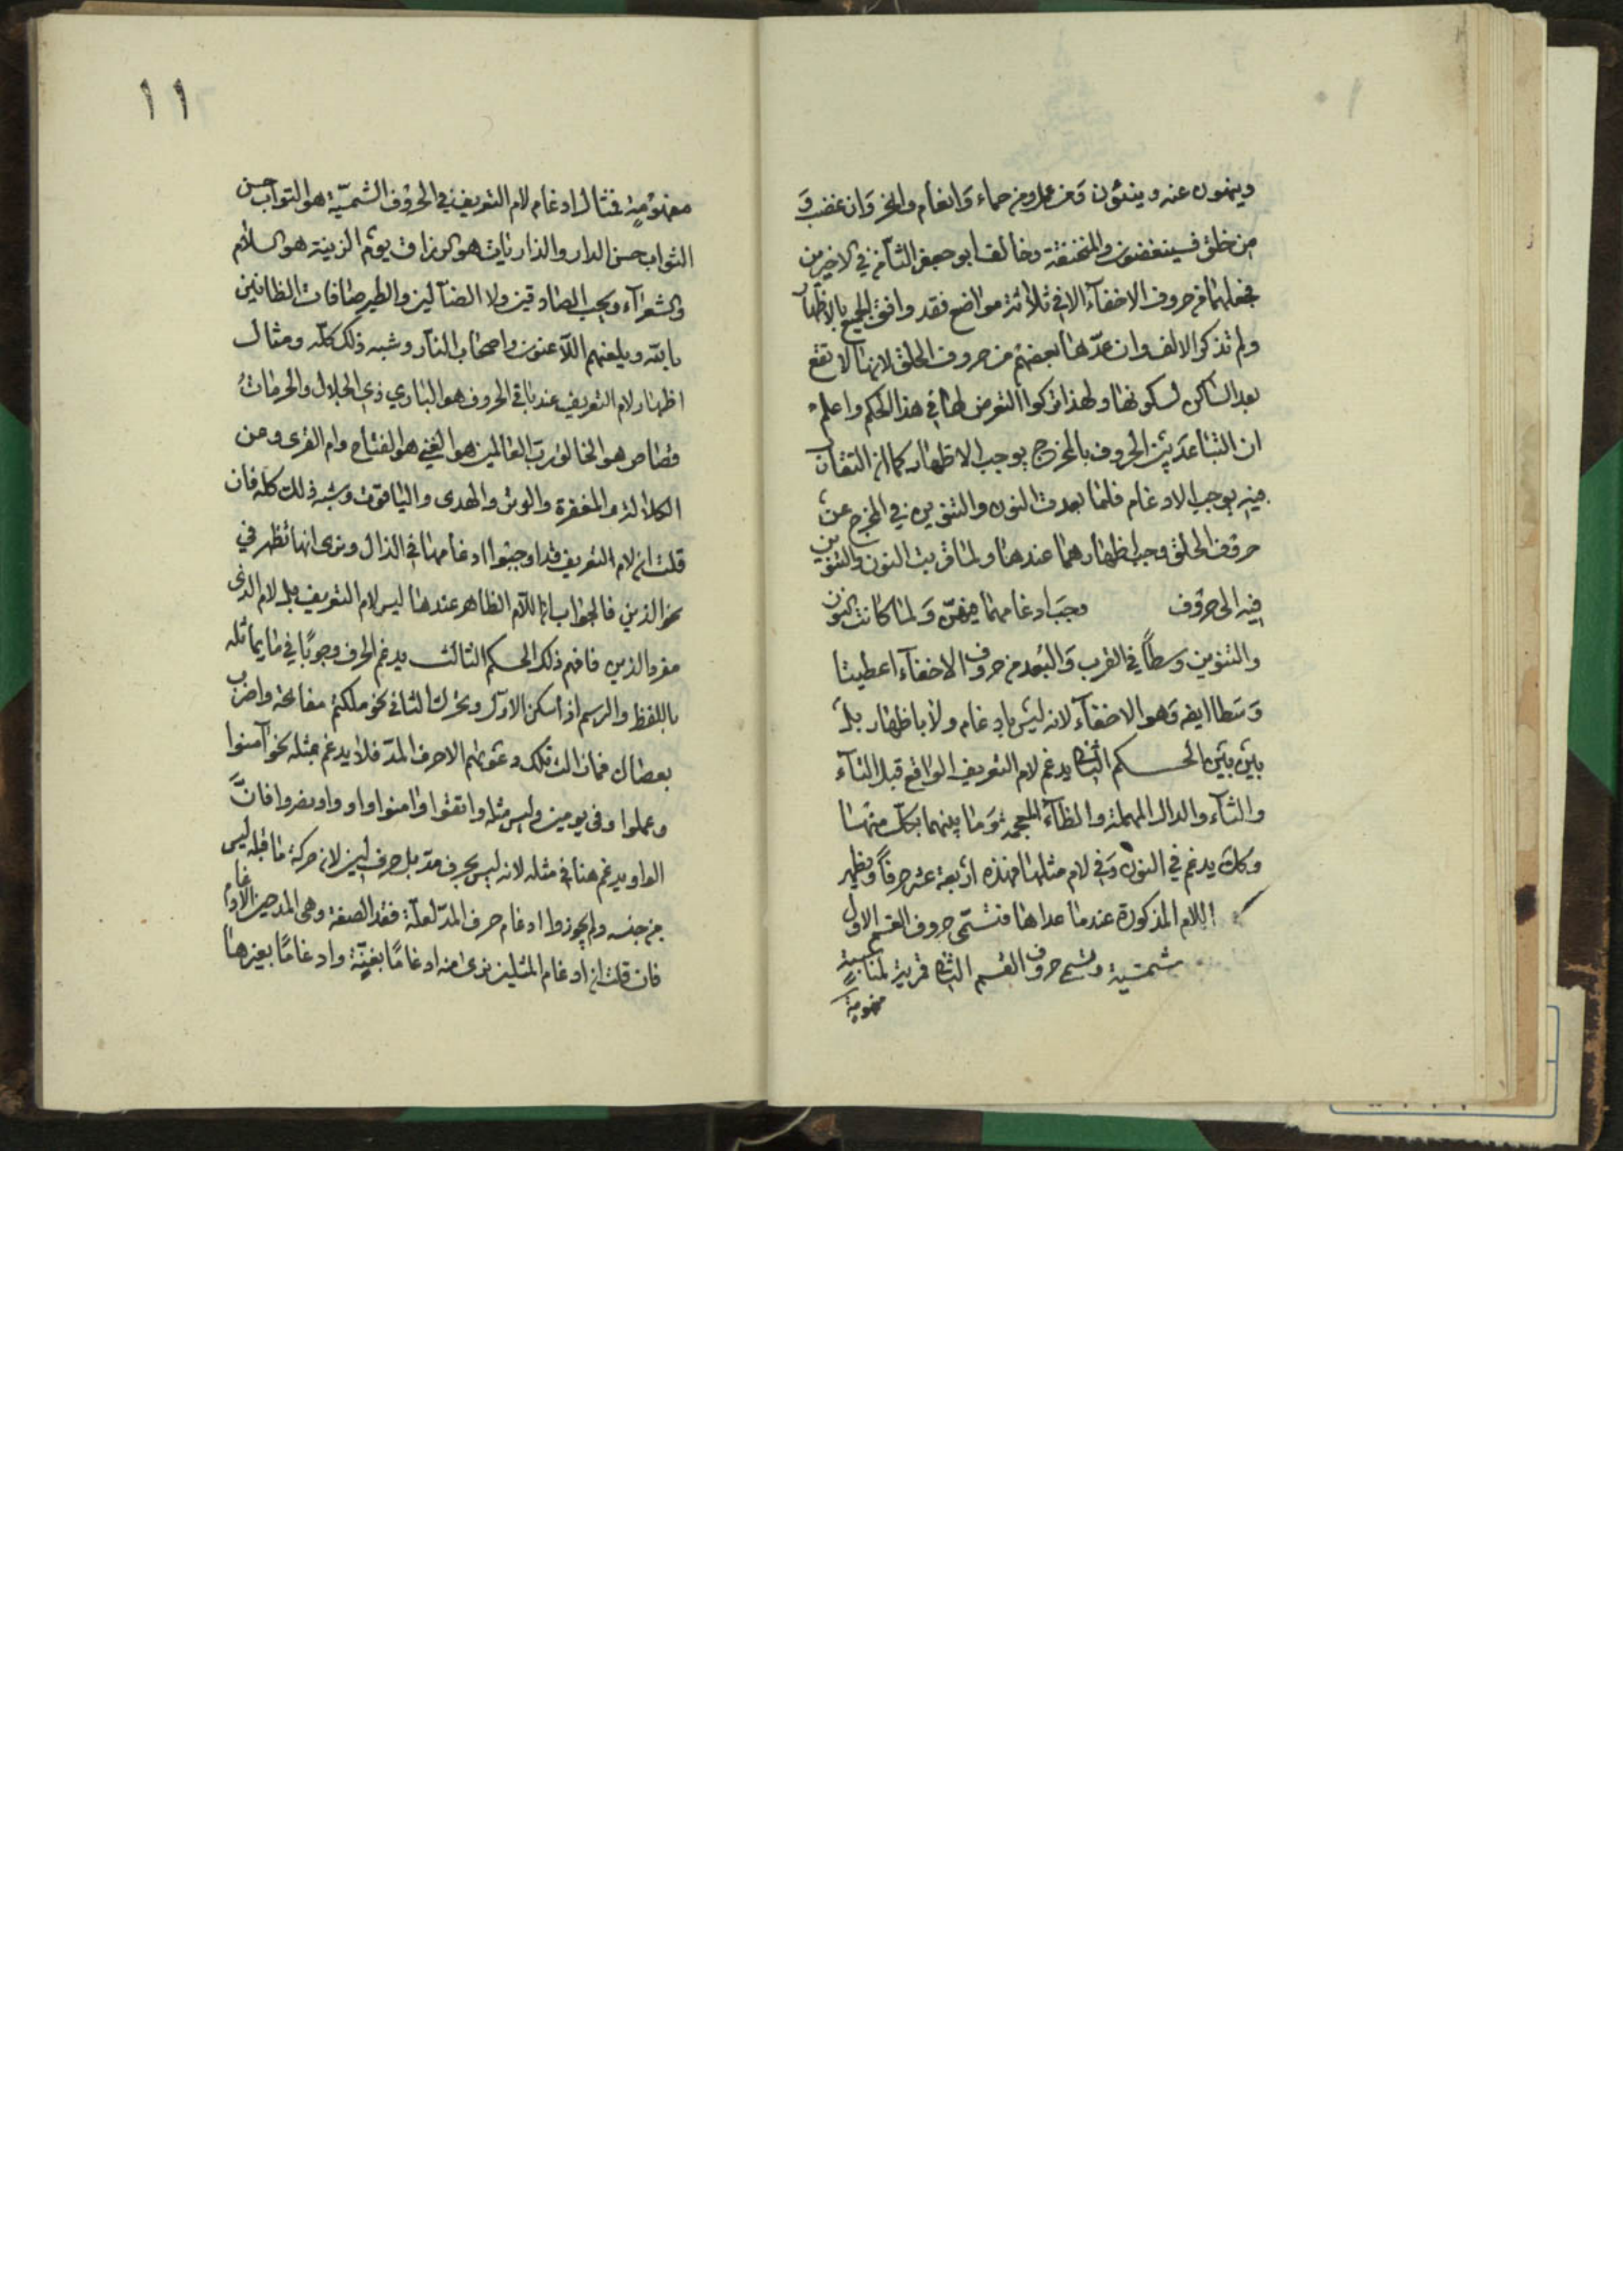 وينهون عنه وينئون وَمن عمل ومن حماء وَانعام وانحر وَان غضب وَ
من خلق فسينغضون والمنخنقة وخالف ابو جعفر الثامن في الاخيرمن
فجعلهما من حروف الاخفآء الا في ثلاثة مواضع فقد وافق الجميع بالاظهار
ولم تذكر الالف وان عدّها بعضهم من حروف الحلق لانها لا تقع
بعد الساكن لسكونها ولهذا تركوا التعرض لها في هذا الحكم واعلم
ان التباعد بين الحروف بالمخرج يوجب الاظهار كما ان التقارب
فيه يوجب الادغام فلما بعدت النون والتنوين في المخرج عن
حروف الحلق وجب اظهارهما عندها ولما قربت النون والتنوين
فيه الى حروف وجب ادغامهما فيهنّ وَلما كانت النون
والتنوين وسطاً في القرب وَالبعد من حروف الاخفآء اعطيتا
وَسَطا ايضا وَهو الاخفآء لانه ليس بادغام ولا باظهار بل
بين بين الحكم الثاني يدغم لام التعريف الواقع قبل التآء
والثآء والدال المهملة والظآء المعجمة وَما بينهما بكل منهما
وكل يدغم في النون وَفي لام مثلها فهذه اربعة عشر حرفاً ويظهر
اللام المذكورة عند ما عداها فتسمّى حروف القسم الاول
شمسية وتسمى حروف القسم الثاني قمرية لمناسبة
مفهومية
١١
مفهوميه فمثال ادغام لام التعريف في الحروف الشمسيّة هو التواب حسن
الثواب حسن الدار والذاريات هو الرزاق يوم الزينة هو السلام
والشعرآء ويحب الصادقين ولا الضآلين والطير صافات الظانين
بالله ويلعنهم اللآعنون واصحاب النار وشبه ذلك كلّه ومثال
اظهار لام التعريف عند باقي الحروف هو الباري ذي الجلال والحرمات
قصاص هو الخالق رب العالمين هو الغني هو الفتاح وام القرى ومن
الكلالة والمغفرة والوتر والهدى والياقوت وشبه ذلك كله فان
قلت ان لام التعريف قد اوجبوا ادغامها في الذال ونرى انها تظهر في
نحو الذين فالجواب ان اللآم الظاهر عندها ليس لام التعريف بل لام الذي
مفرد الذين فافهم ذلك الحكم الثالث يدغم الحرف وجوبًا في ما يماثله
باللفظ والرسم اذ اسكن الاول وتحرك الثاني نحو ملكتم مفاتحه واضرب
بعصاك فمازالت تلك دعويهم الا حرف المدّ فلا يدغم بمثله نحو آمنوا
وعملوا وفى يومين وليس مثله واتقوا وامنوا واووا ونصروا فان
الواو يدغم هنا في مثله لانه ليس بحرف مد بل حرف لين لان حركة ما قبله ليس
من جنسه ولم يجوزوا ادغام حرف المدّ لعلّة فقد الصفة وهى المد حين الادغام
فان قلت ان ادغام المثلين نرى منه ادغامًا بغنّة وادغامًا بغيرها